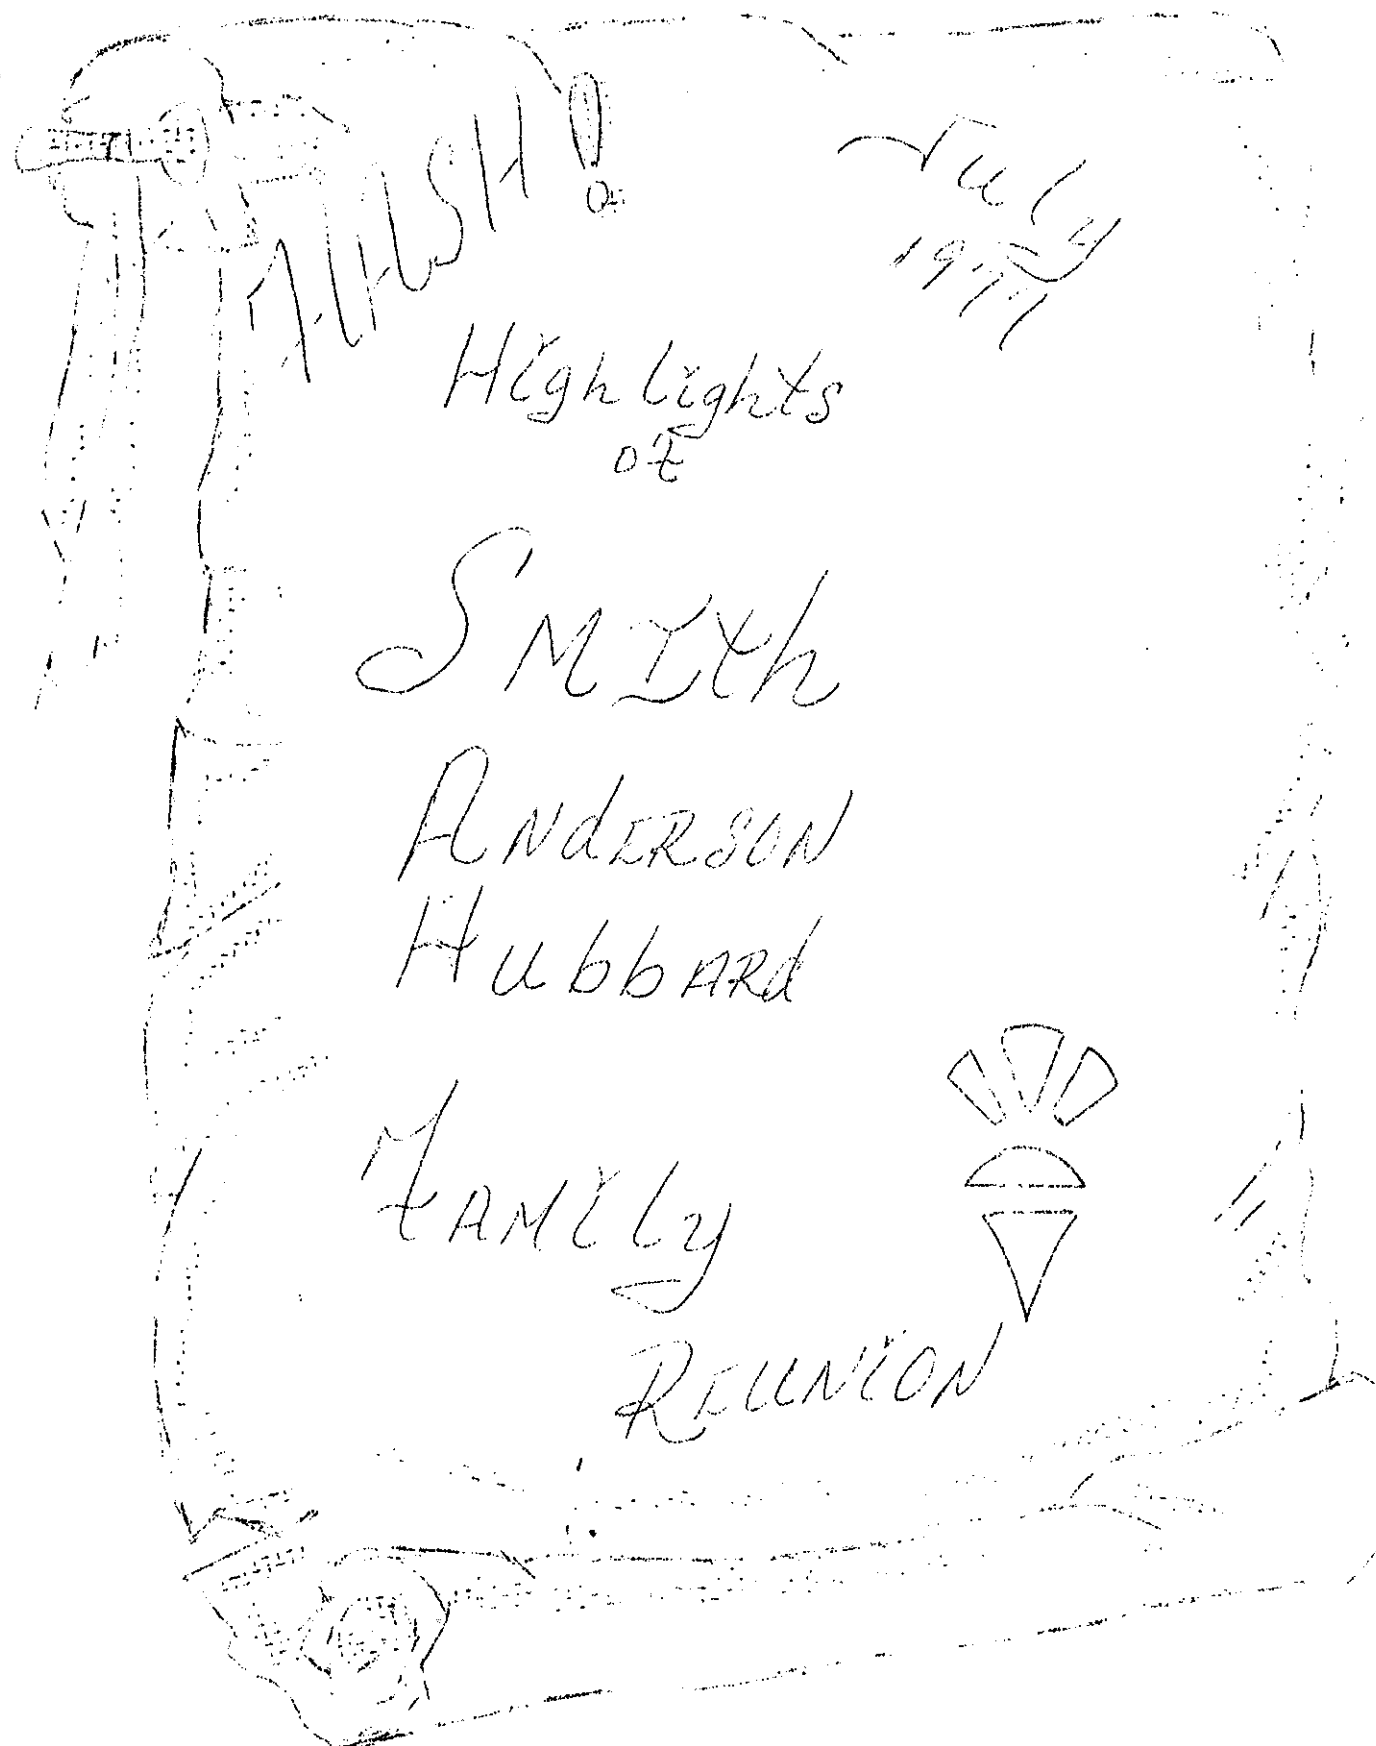 FLASH!
July
1977
Highlights
of
SMITh
ANdERSON
HubbARd
FAMily
REUNiON